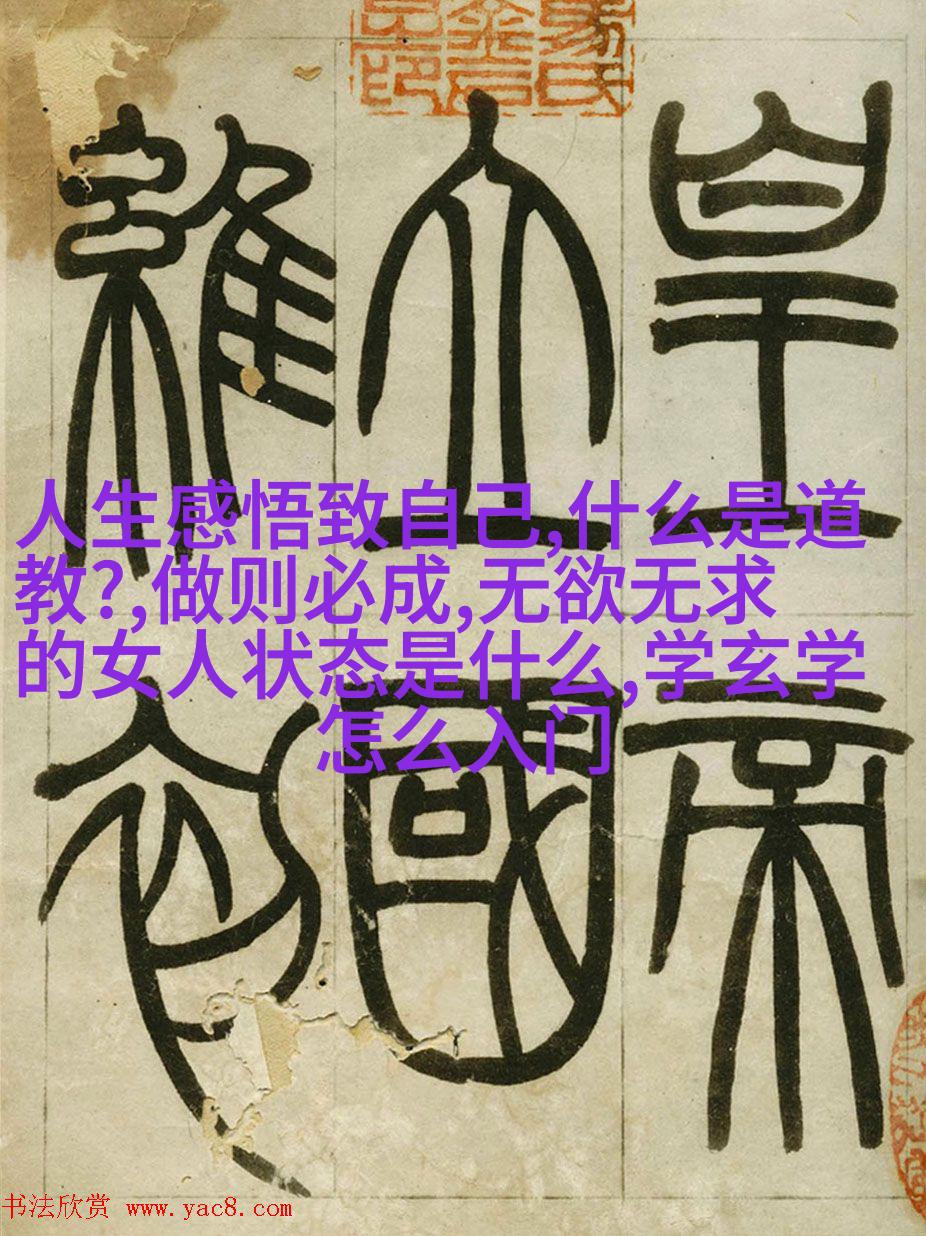 皇帝
立國
維初
人生感悟致自己,什么是道
教?,做则必成,无欲无求
的女人状态是什么,学玄学
怎么入门
书法欣赏 www.yac8.com